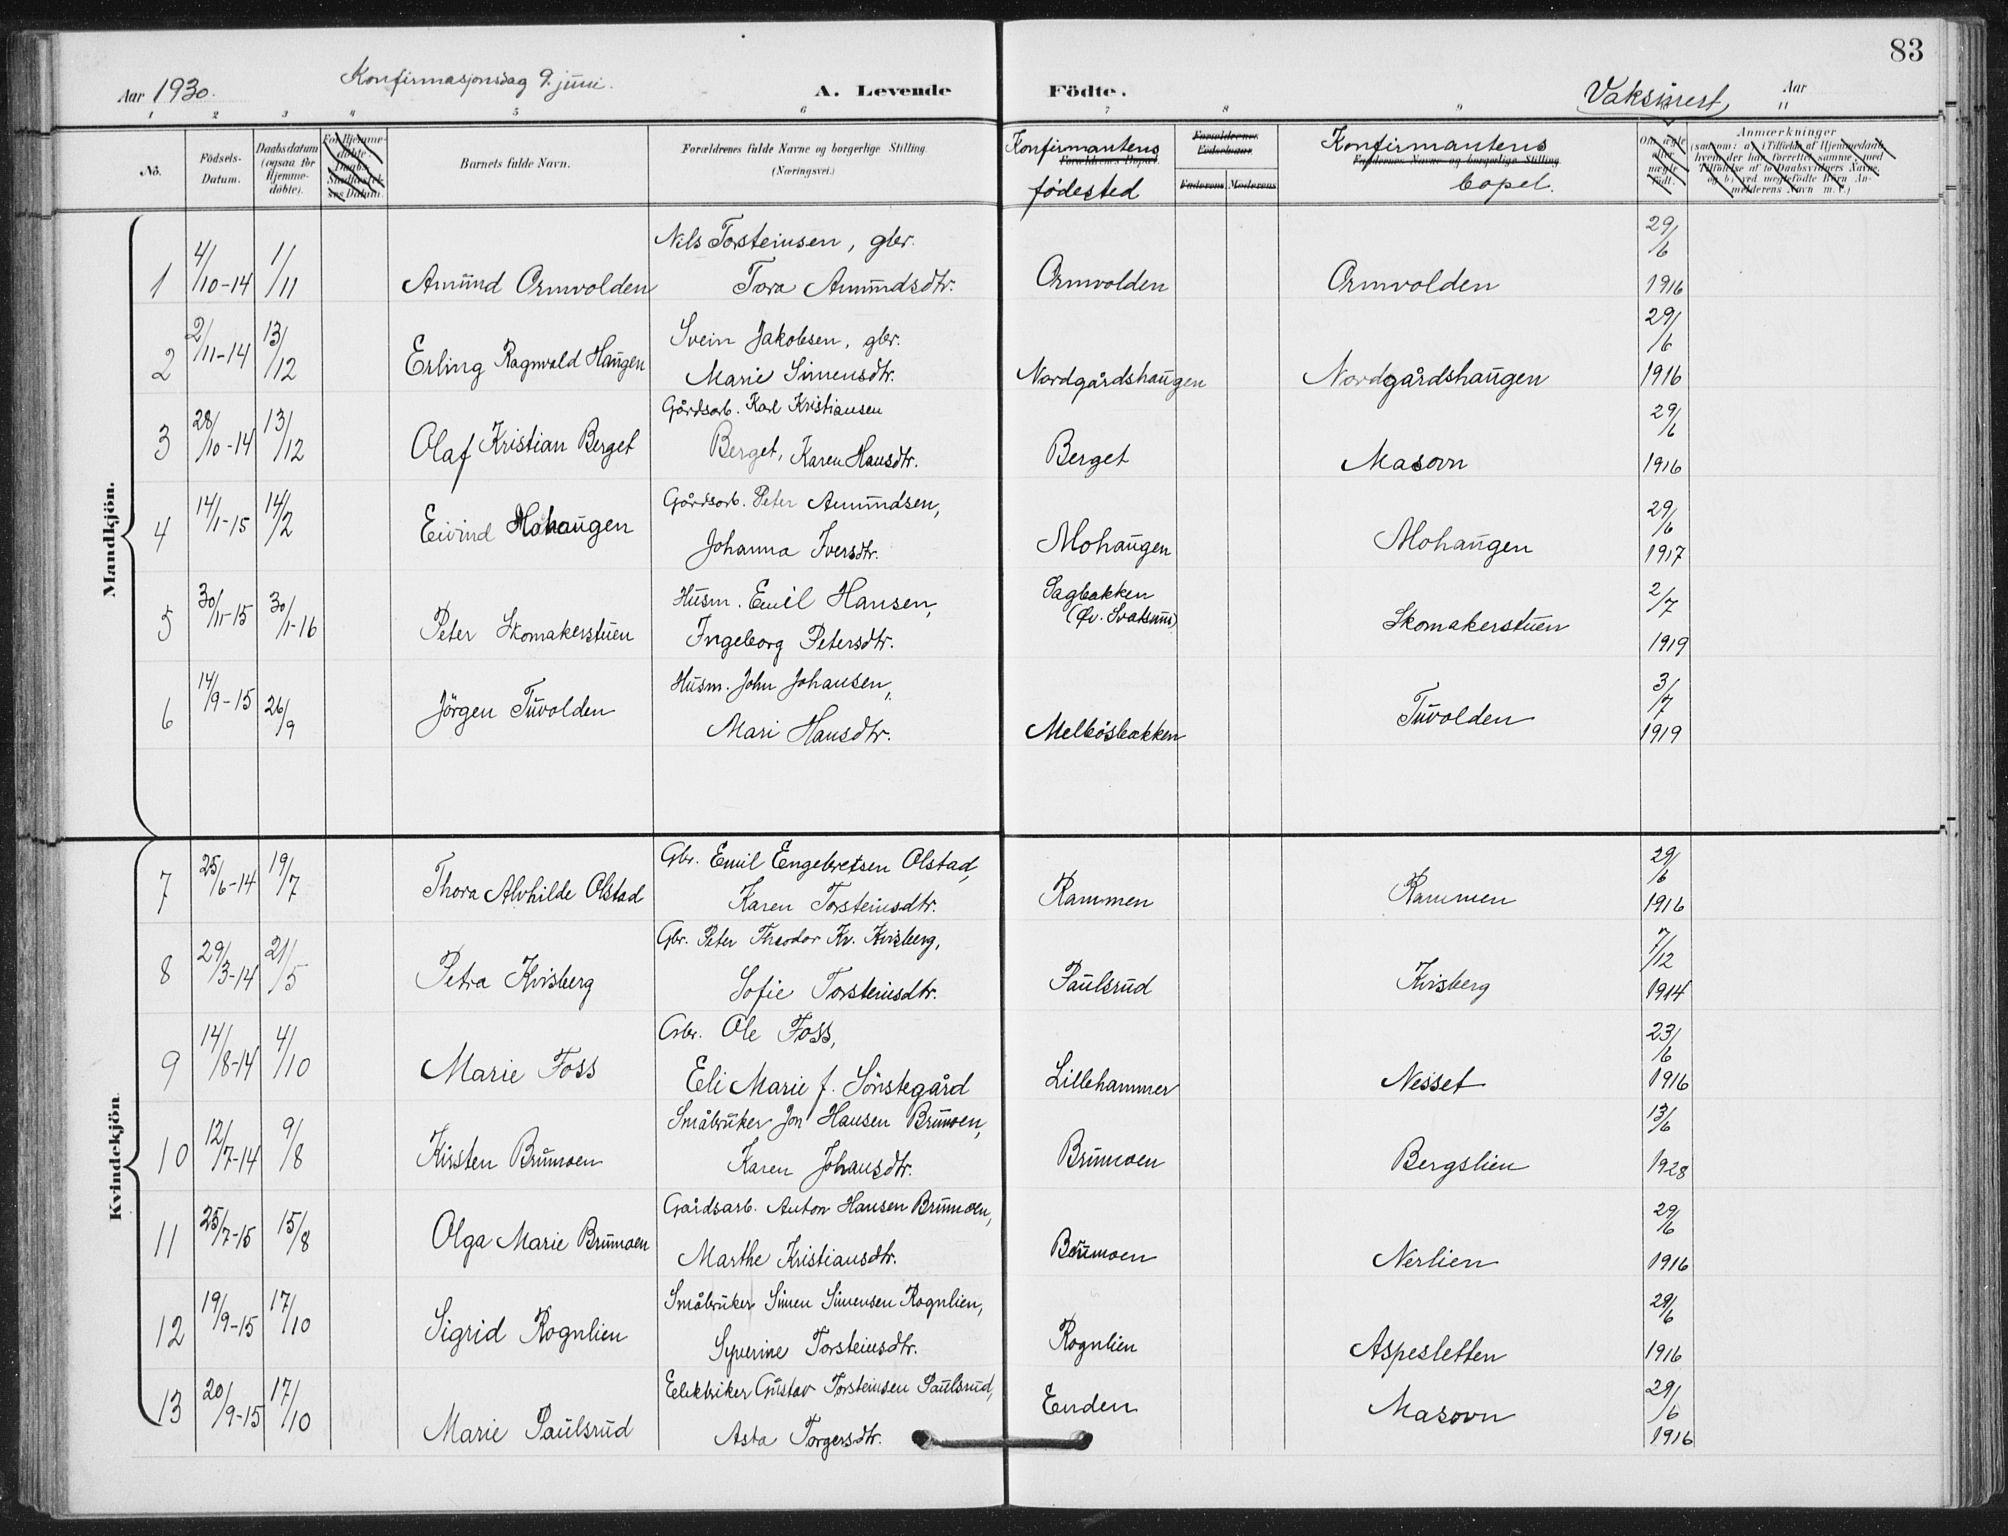 83
Aar 1930.
Konfirmasjonsdag 9. juni.
A. Levende
Födte.
Vaksinert
Aar
1 2 3 4 5 6 7 8 9 11
Nò.
Födsels-
Datum.
Daabsdatum
(ogsaa for
Hjemme-
döbte).
For Hjemme-
döbte:
Daabs
Stadfæstel-
ses Datum.
Barnets fulde Navn.
Forældrenes fulde Navne og borgerlige Stilling
(Næringsvei.)
Konfirmantens
Forældrenes Bopæl.
födested
Forældrenes
Födselsaar.
Faderens Moderens
Konfirmantens
Faddernes Navne og borgerlige Stilling
bopel.
Om ægte
eller
uægte
födt.
Anmærkninger
(saasom: a) i Tilfælde af Hjemmedaab
hvem der har forrettet samme, med
Tilföielse af to Daabsvidners Navne,
og b) ved uægtefödte Börn An-
melderens Navn m. v.)
Mandkjön.
1 4/10-14 1/11 Amund Ormvolden Nils Torsteinsen, gbr. Tora Amundsdtr. Ormvolden Ormvolden 29/6 1916
2 2/11-14 13/12 Erling Ragnvald Haugen Svein Jakobsen, gbr. Marie Simensdtr. Nordgårdshaugen Nordgårdshaugen 29/6 1916
3 28/10-14 13/12 Olaf Kristian Berget Gårdsarb. Karl Kristiansen Berget, Karen Hansdtr. Berget Masovn 29/6 1916
4 14/1-15 14/2 Eivind Mohaugen Gårdsarb. Peter Amundsen, Johanna Iversdtr. Mohaugen Mohaugen 29/6 1917
5 30/11-15 30/1-16 Peter Skomakerstuen Husm. Emil Hansen, Ingeborg Petersdtr. Sagbakken (Öv. Svatsum) Skomakerstuen 2/7 1919
6 14/9-15 26/9 Jörgen Tuvolden Husm. John Johansen, Mari Hansdtr. Melbösbakken Tuvolden 3/7 1919
Kvindekjön
7 25/6-14 19/7 Thora Alvhilde Olstad Gbr. Emil Engebretsen Olstad, Karen Torsteinsdtr. Rammen Rammen 29/6 1916
8 29/3-14 21/5 Petra Kvisberg Gbr. Peter Theodor Kr. Kvisberg, Sofie Torsteinsdtr. Paulsrud Kvisberg 7/12 1914
9 14/8-14 4/10 Marie Foss Ole Foss, Eli Marie f. Sönstegård Lillehammer Nesset 23/6 1916
10 12/7-14 9/8 Kirsten Brumoen Småbruker Jon Hansen Brumoen, Karen Johansdtr. Brumoen Bergslien 13/6 1928
11 25/7-15 15/8 Olga Marie Brumoen Gårdsarb. Anton Hansen Brumoen, Marthe Kristiansdtr. Brumoen Nerlien 29/6 1916
12 19/9-15 17/10 Sigrid Rognlien Småbruker Simen Simensen Rognlien, Syverine Torsteinsdtr. Rognlien Aspesletten 29/6 1916
13 20/9-15 17/10 Marie Paulsrud Eelektriker Gustav Torsteinsen Paulsrud, Asta Torgersdtr. Enden Masovn 29/6 1916